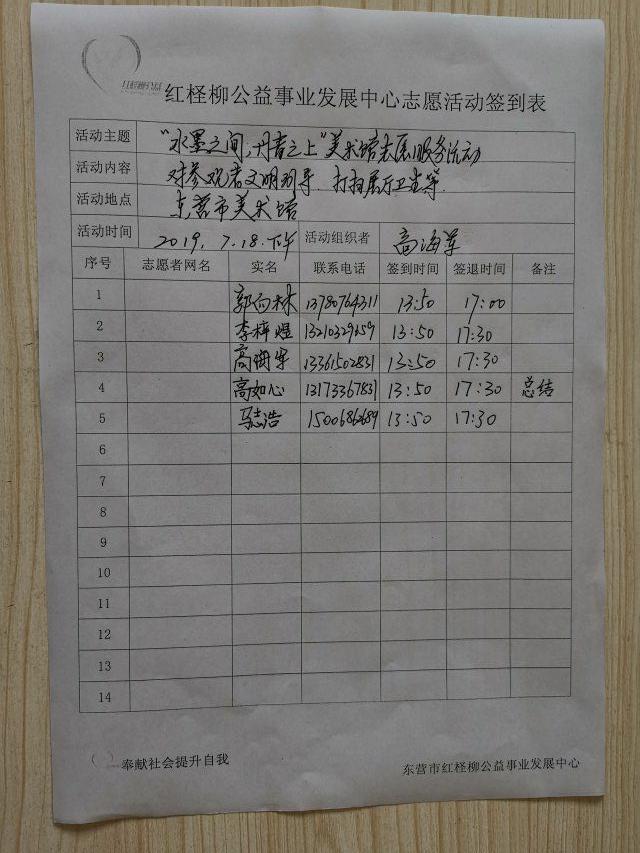 红柽柳公益事业发展中心志愿活动签到表
活动主题 "水墨之间,丹青之上"美术馆志愿服务活动
活动内容 对参观者文明引导、打扫展厅卫生等.
活动地点 东营市美术馆
活动时间 2019.7.18.下午 活动组织者 高海军
序号 志愿者网名 实名 联系电话 签到时间 签退时间 备注
1 郭向林 13780764311 13:50 17:00
2 李梓煜 13210329259 13:50 17:30
3 高海军 13361502831 13:50 17:30
4 高如心 13173367831 13:50 17:30 总结
5 马志浩 15006862689 13:50 17:30
6
7
8
9
10
11
12
13
14
奉献社会提升自我 东营市红柽柳公益事业发展中心